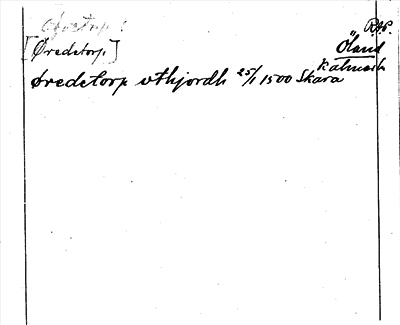 RAP.
[Øredetorp.]
Öland
Øredetorp vthjordh 25/1 1500 Skara